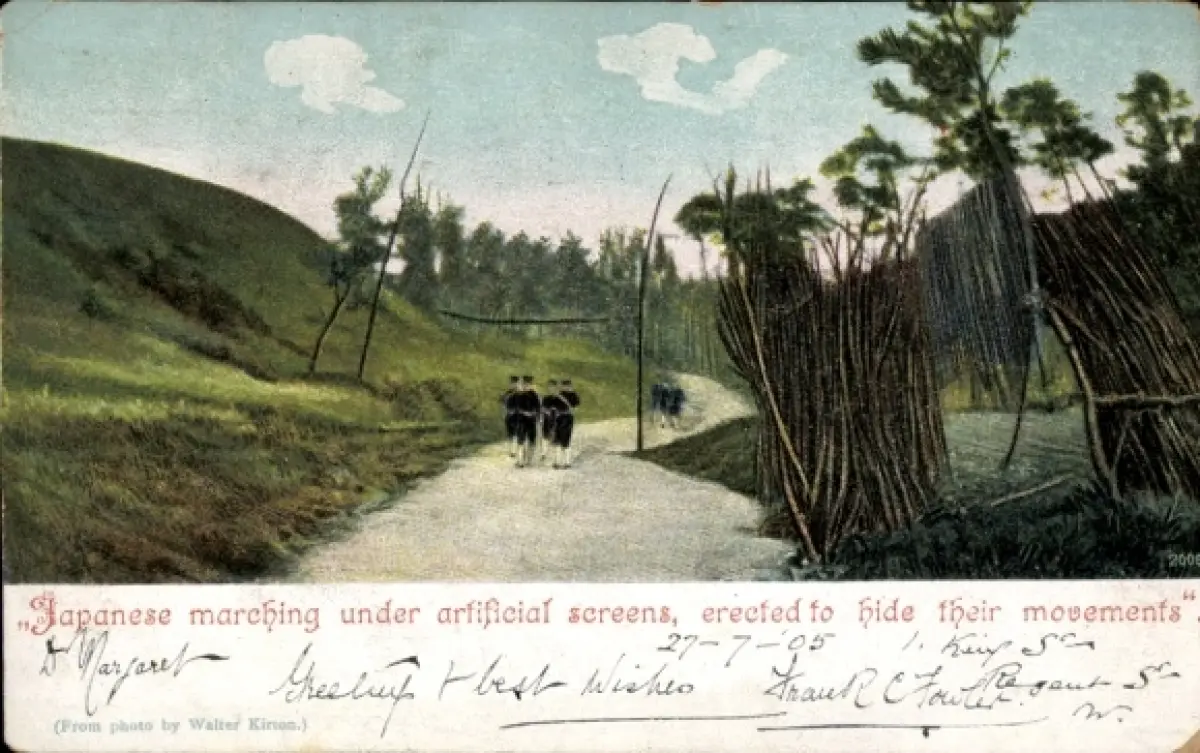 „Japanese marching under artificial screens, erected to hide their movements“.
27-7-'05 1. King St
D Margaret Greetings & best Wishes Frank C Fowler. Regent St
W.
(From photo by Walter Kirton.)